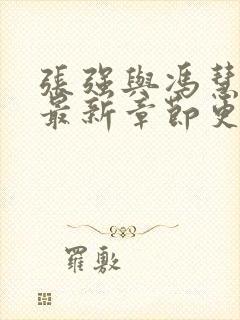 張強與馮慧
最新章節更
羅敷